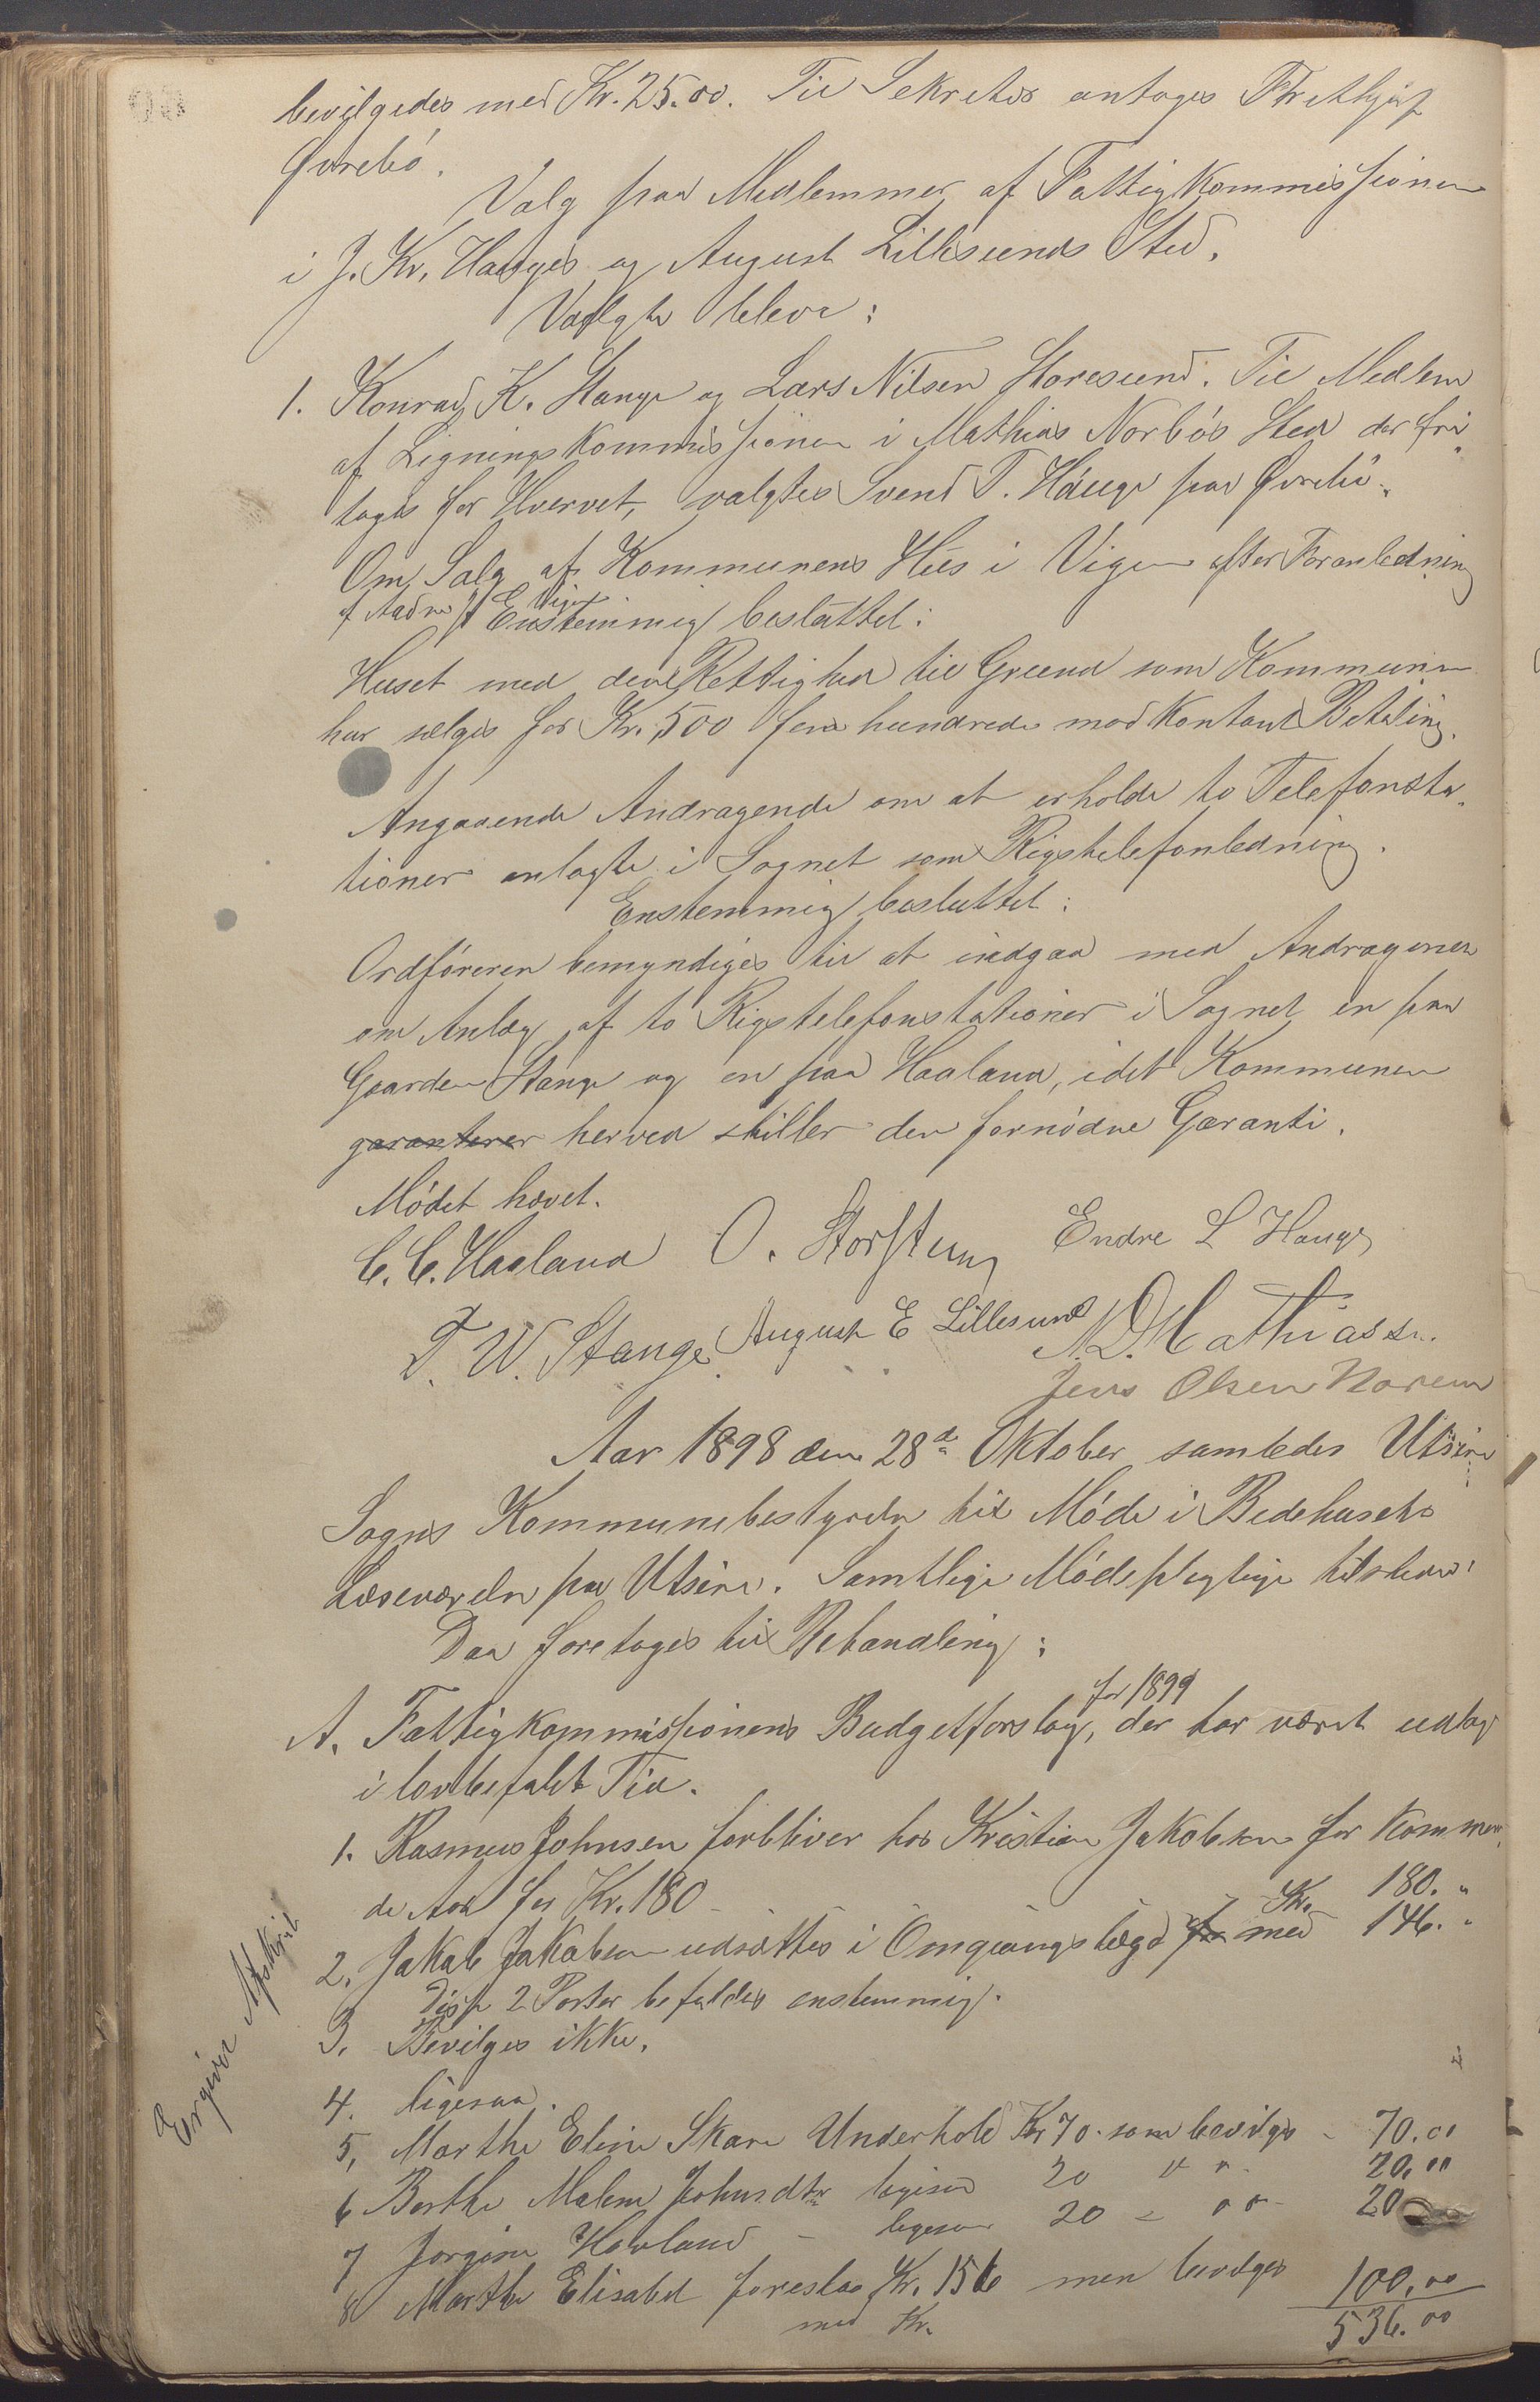 bevilgedes med Kr. 25.00. Til Sekretær antoges Frithjof
Øvrebö.
Valg paa Medlemmer af Fattigkommissionen
i J. Kr. Hauges og August Lillesunds Sted.
Valgte bleve:
1. Konrad K. Stange og Lars Nilsen Storesund. Til Medlem
af Ligningskommissionen i Mathias Norbös Sted der fri-
toges for Hvervet, valgtes Svend T. Hauge paa Øvrebö.
Om Salg af Kommunens Hus i Vigen efter Foranledning
af Aadne Vigen Enstemmig besluttet:
Huset med den Rettighed til Grund som Kommunen
har sælges for Kr. 500 fem hundrede mod Kontant Betaling.
Angaaende Andragende om at erholde to Telefonsta-
tioner anlagte i Sognet som Rigstelefonledning.
Enstemmig besluttet:
Ordföreren bemyndiges til at indgaa med Andragende
om Anlæg af to Rigstelefonstationer i Sognet en paa
Gaarden Stange og en paa Haaland, idet Kommunen
garanterer herved stiller den fornödne Garanti.
Mödet hævet.
C. C. Haaland O. Storsteen Endre L Hauge
T. W. Stange. August E Lillesund N. D. Mathiassen.
Jens Olsen Norem
Aar 1898 den 28de Oktober samledes Utsire
Sogns Kommunebestyrelse til Möde i Bedehusets
Læseværelse paa Utsire. Samtlige Mödepligtige tilstede.
Daa foretoges til Behandling:
A. Fattigkommissionens Budgetforslag for 1899, der har været udlagt
i lovbefalet Tid.
1. Rasmus Johnsen forbliver hos Kristian Jakobsen for kommen-
de Aar for Kr. 180 - Kr. 180. "
2. Jakob Jakobsen udsættes i Omgangslægd for med 146. "
Disse 2 Poster befaldes enstemmig.
3. Bevilges ikke.
4. ligesaa.
5, Marthe Eline Skare Underhold Kr 70. som bevilges - 70.00
6 Berthe Malene Johnsdtr ligesaa 20 " " - 20.00
7 Jorgine Hovland - ligesaa 20 - " " - 20
8 Marthe Elisabet foreslaa Kr. 156 men bevilges
med Kr. 100.00
536.00
Ergivet Afskrift